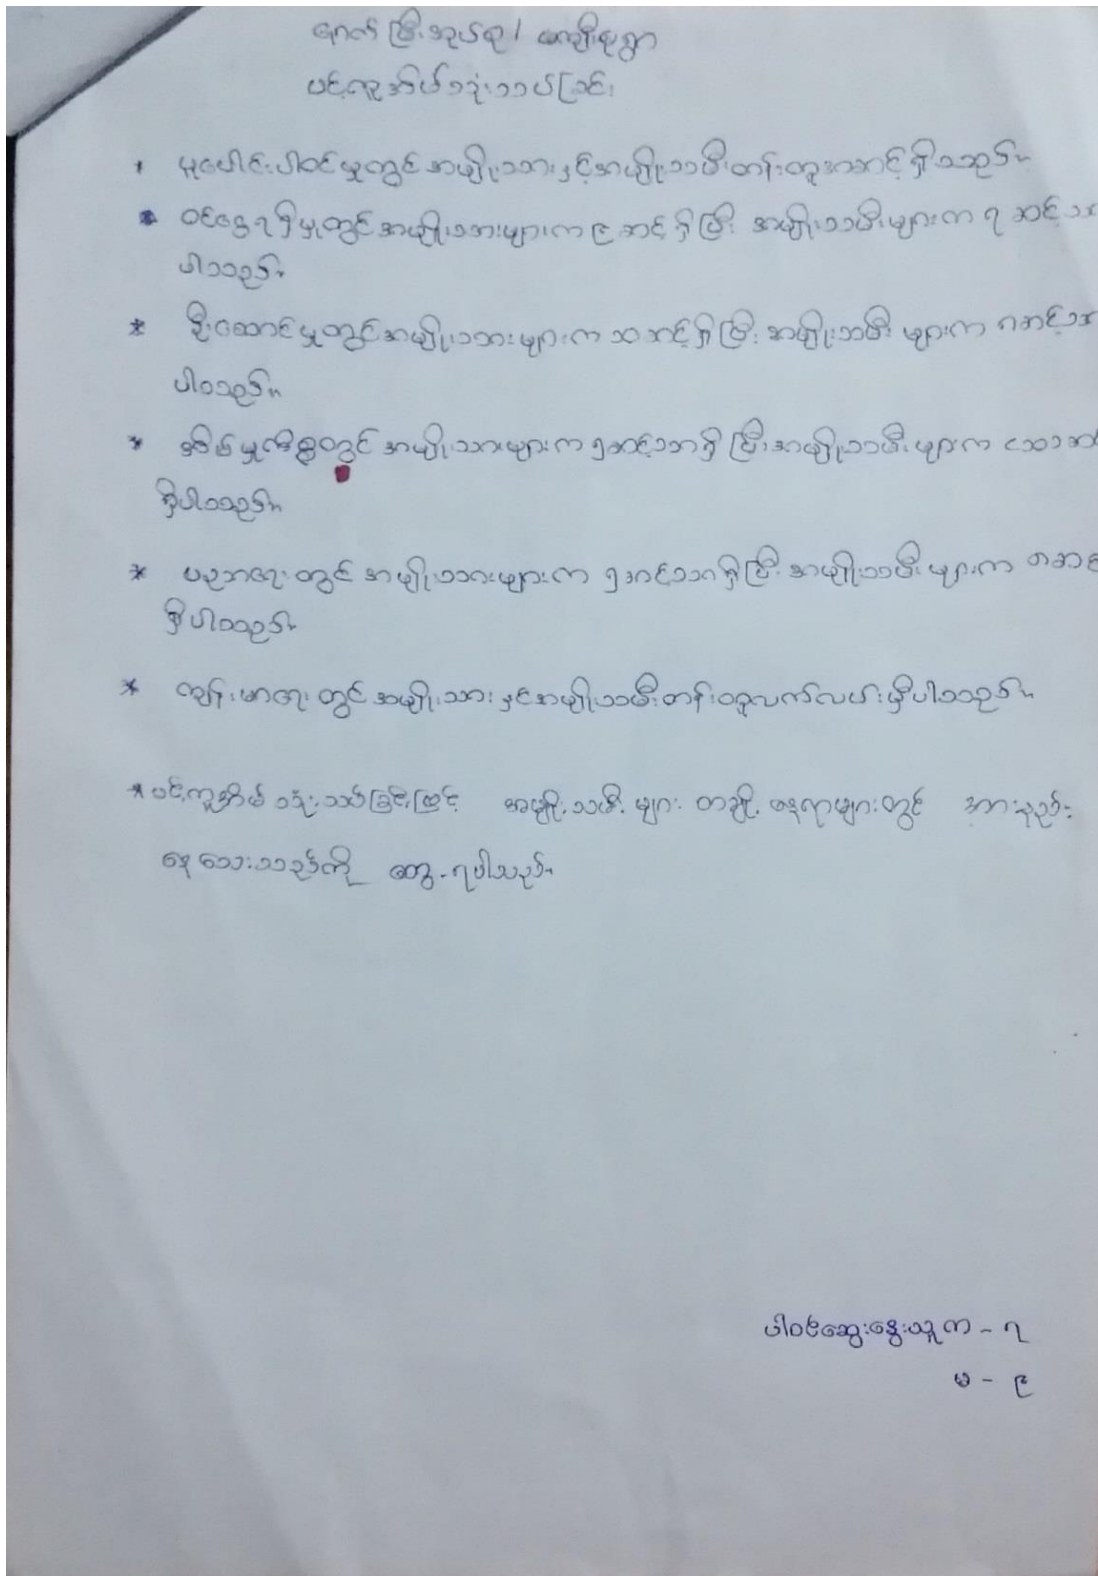 နောက်မြီးအုပ်စု/ ကျေးရွာ
ပင့်ကူအိမ်သုံးသပ်ခြင်း
* ပူးပေါင်းပါဝင်မှုတွင်အမျိုးသားနှင့်အမျိုးသမီးတန်းတူအဆင့်ရှိသည်။
* ဝင်ငွေရရှိမှုတွင်အမျိုးသားများက ၉ ဆင့်ရှိပြီး အမျိုးသမီးများက ၇ ဆင့်သာ
ပါသည်။
* ဦးဆောင်မှုတွင်အမျိုးသားများက ဆင့်ရှိပြီး အမျိုးသမီး များက ဆင့်သာ
ပါသည်။
* အိမ်မှုကိစ္စတွင် အမျိုးသားများက ၅ဆင့်သာရှိပြီးအမျိုးသမီးများက
ရှိပါသည်။
* ပညာရေးတွင် အမျိုးသားများက ၅ဆင့်သာရှိပြီး အမျိုးသမီးများက
ရှိပါသည်။
* ကျန်းမာရေးတွင်အမျိုးသားနှင့်အမျိုးသမီးတန်းတူလက်လှမ်းမှီပါသည်။
* ပင့်ကူအိမ်သုံးသပ်ခြင်းဖြင့် အမျိုးသမီးများ တချို့နေရာများတွင် အားနည်း
နေသေးသည်ကို တွေ့ရပါသည်။
ပါဝင်ဆွေးနွေးသူ က - ၇
မ - ၉